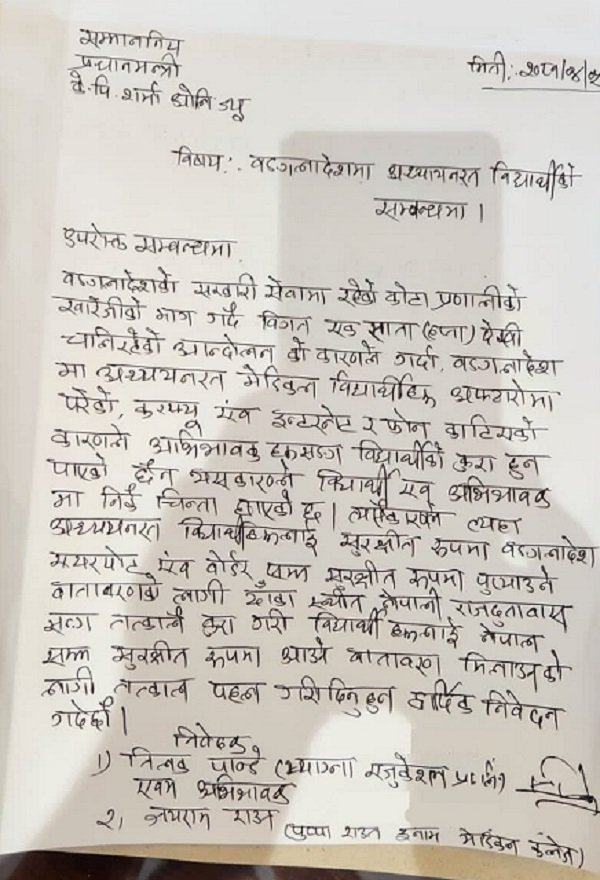 सम्माननिय
प्रधानमन्त्री
के. पि. शर्मा ओलि ज्यू
मिती: २०८१/४/
विषय: बङ्गलादेशमा अध्ययनरत विद्यार्थीको
सम्बन्धमा ।
उपरोक्त सम्बन्धमा
बङ्गलादेशको सरकारी सेवामा रहेको कोटा प्रणालीको
खारेजीको माग गर्दै विगत एक साता (हप्ता) देखी
चलिरहेको आन्दोलन को कारणले गर्दा, बङ्गलादेश
मा अध्ययनरत मेडिकल विद्यार्थीहरू अफ्ठारोमा
परेको, करफ्यू एंव इन्टरनेट र फोन काटिएको
कारणले अभिभावक हरूसङ्ग विद्यार्थीको कुरा हुन
पाएको छैन जसकारणले विद्यार्थी एवं अभिभावक
मा निकै चिन्ता छाएको छ । त्यसैकारणले त्यहा
अध्ययनरत विद्यार्थीहरूलाई सुरक्षीत रूपमा बङ्गलादेश
एयरपोर्ट एंव बोर्डर सम्म सुरक्षीत रूपमा पुर्‍याउने
वातावरणको लागी ढाँका स्थीत नेपाली राजदुतावास
सङ्ग तत्काल कुरा गरी विद्यार्थी हरूलाई नेपाल
सम्म सुरक्षीत रूपमा आउने वातावरण मिलाउनको
लागी तत्काल पहल गरिदिनु हुन हार्दिक निवेदन
गर्दछौं ।
निवेदक
१) तिलक पाण्डे ( एजुकेशन प्रा.लि.)
एवम अभिभावक
२) जयराम राउत (पुष्पा राउत इनाम मेडिकल कलेज)